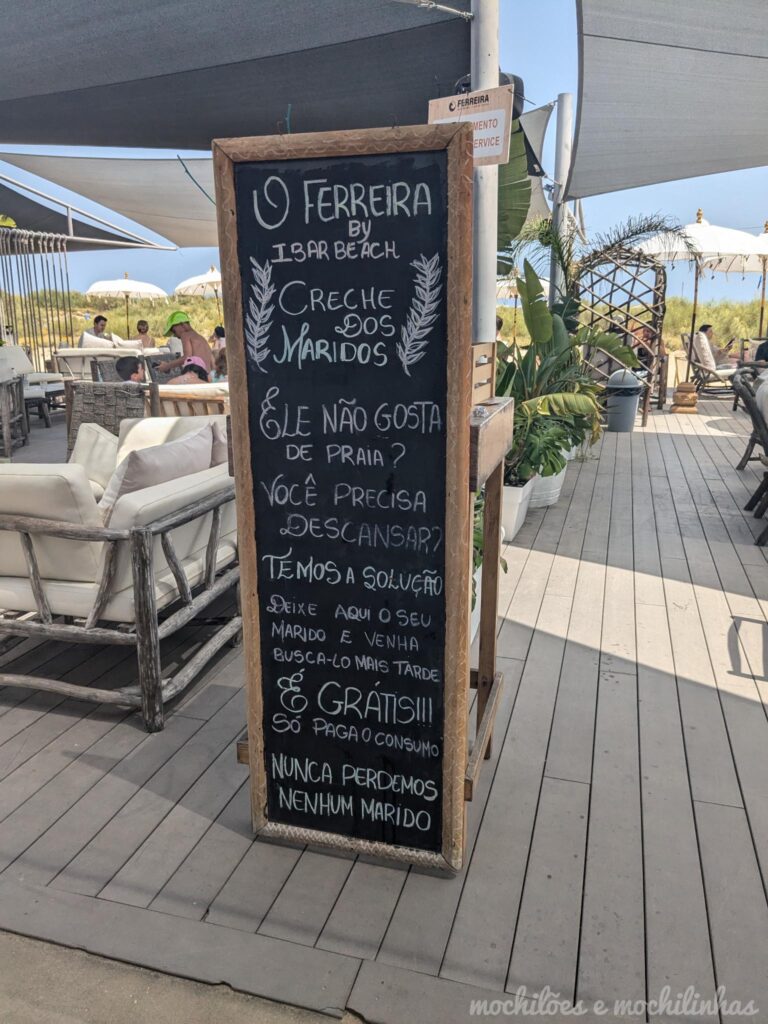 FERREIRA
MENTO
ERVICE
O FERREIRA
BY
IBAR BEACH
CRECHE
DOS
MARIDOS
ELE NÃO GOSTA
DE PRAIA?
VOCÊ PRECISA
DESCANSAR?
TEMOS A SOLUÇÃO
DEIXE AQUI O SEU
MARIDO E VENHA
BUSCA-LO MAIS TARDE
É GRÁTIS!!!
SÓ PAGA O CONSUMO
NUNCA PERDEMOS
NENHUM MARIDO
mochilões e mochilinhas